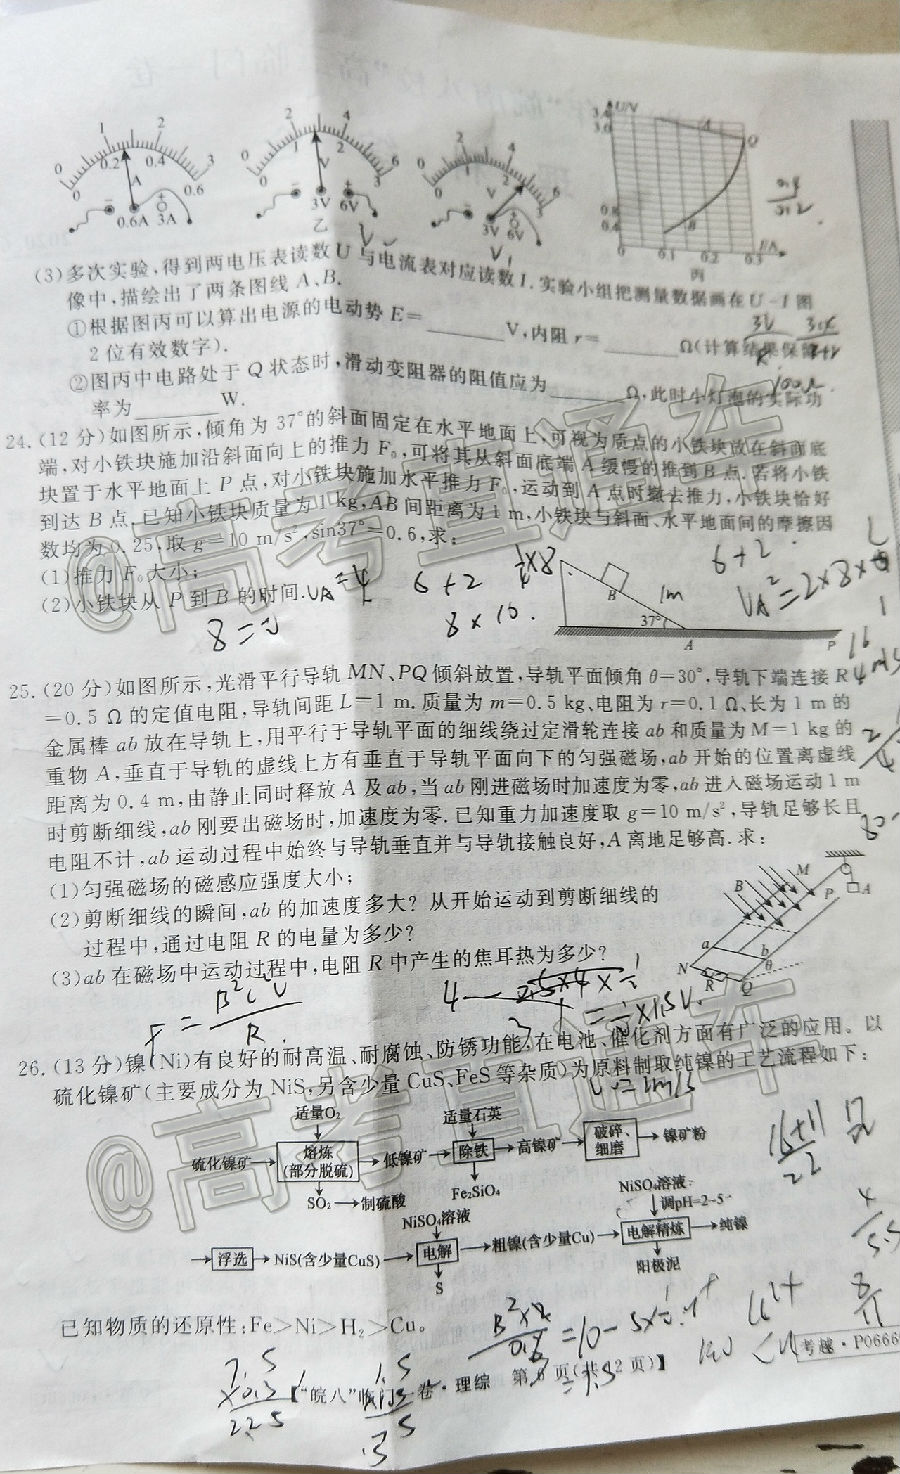 0 1 2 3
0 0.2 0.4 0.6
A
0.6A 3A
0 2 4 6
0 1 2 3
V
3V 6V
乙
0 2 4 6
0 1 2
V
3V 6V
V₁
U/V
3.4
3.0
A
Q
B
0.8
0.4
0 0.1 0.2 0.3 I/A
丙
(3)多次实验,得到两电压表读数U与电流表对应读数I.实验小组把测量数据画在U-I图
像中,描绘出了两条图线A、B.
①根据图丙可以算出电源的电动势E=______V,内阻r=______Ω(计算结果保留
2位有效数字).
②图丙中电路处于Q状态时,滑动变阻器的阻值应为______Ω,此时小灯泡的实际功
率为______W.
24.(12分)如图所示,倾角为37°的斜面固定在水平地面上,可视为质点的小铁块放在斜面底
端,对小铁块施加沿斜面向上的推力F₀,可将其从斜面底端A缓慢的推到B点.若将小铁
块置于水平地面上P点,对小铁块施加水平推力F₀,运动到A点时撤去推力,小铁块恰好
到达B点.已知小铁块质量为1 kg,AB间距离为1 m,小铁块与斜面、水平地面间的摩擦因
数均为0.25,取g=10 m/s²,sin37°=0.6,求:
(1)推力F₀大小;
(2)小铁块从P到B的时间.
6+2
6+2
8×10.
1m
B
37°
A
P
25.(20分)如图所示,光滑平行导轨MN、PQ倾斜放置,导轨平面倾角θ=30°,导轨下端连接R
=0.5 Ω的定值电阻,导轨间距L=1 m.质量为m=0.5 kg、电阻为r=0.1 Ω、长为1 m的
金属棒ab放在导轨上,用平行于导轨平面的细线绕过定滑轮连接ab和质量为M=1 kg的
重物A,垂直于导轨的虚线上方有垂直于导轨平面向下的匀强磁场,ab开始的位置离虚线
距离为0.4 m,由静止同时释放A及ab,当ab刚进磁场时加速度为零,ab进入磁场运动1 m
时剪断细线,ab刚要出磁场时,加速度为零.已知重力加速度取g=10 m/s²,导轨足够长且
电阻不计,ab运动过程中始终与导轨垂直并与导轨接触良好,A离地足够高.求:
(1)匀强磁场的磁感应强度大小;
(2)剪断细线的瞬间,ab的加速度多大?从开始运动到剪断细线的
过程中,通过电阻R的电量为多少?
(3)ab在磁场中运动过程中,电阻R中产生的焦耳热为多少?
B
M
P
A
a
b
N
θ
R
Q
26.(13分)镍(Ni)有良好的耐高温、耐腐蚀、防锈功能,在电池、催化剂方面有广泛的应用。以
硫化镍矿(主要成分为NiS,另含少量CuS、FeS等杂质)为原料制取纯镍的工艺流程如下:
适量O₂ 适量石英
硫化镍矿→熔炼(部分脱硫)→低镍矿→除铁→高镍矿→破碎、细磨→镍矿粉
SO₂→制硫酸 Fe₂SiO₄
NiSO₄溶液 NiSO₄溶液
调pH=2~5
→浮选→NiS(含少量CuS)→电解→粗镍(含少量Cu)→电解精炼→纯镍
S 阳极泥
已知物质的还原性:Fe>Ni>H₂>Cu。
考越·P0666
【“皖八”临门一卷·理综 第6页(共12页)】